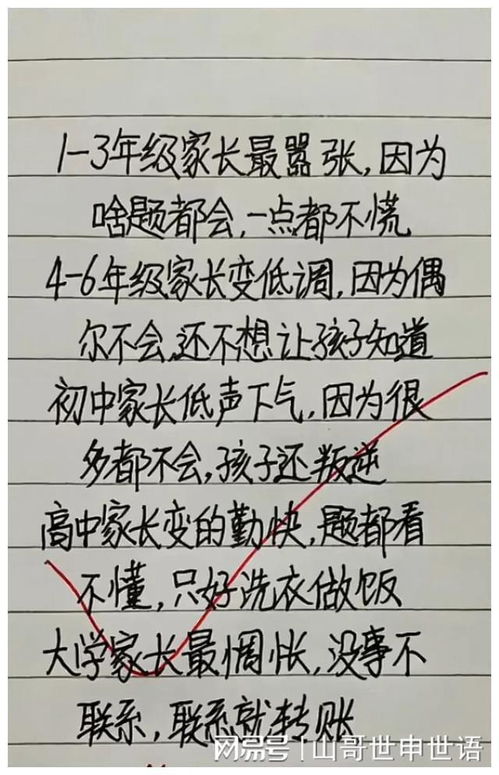 1-3年级家长最嚣张,因为
啥题都会,一点都不慌
4-6年级家长变低调,因为偶
尔不会,还不想让孩子知道
初中家长低声下气,因为很
多都不会,孩子还叛逆
高中家长变的勤快,题都看
不懂,只好洗衣做饭
大学家长最惆怅,没事不
联系,联系就转账
搜狐号|山哥世申世语